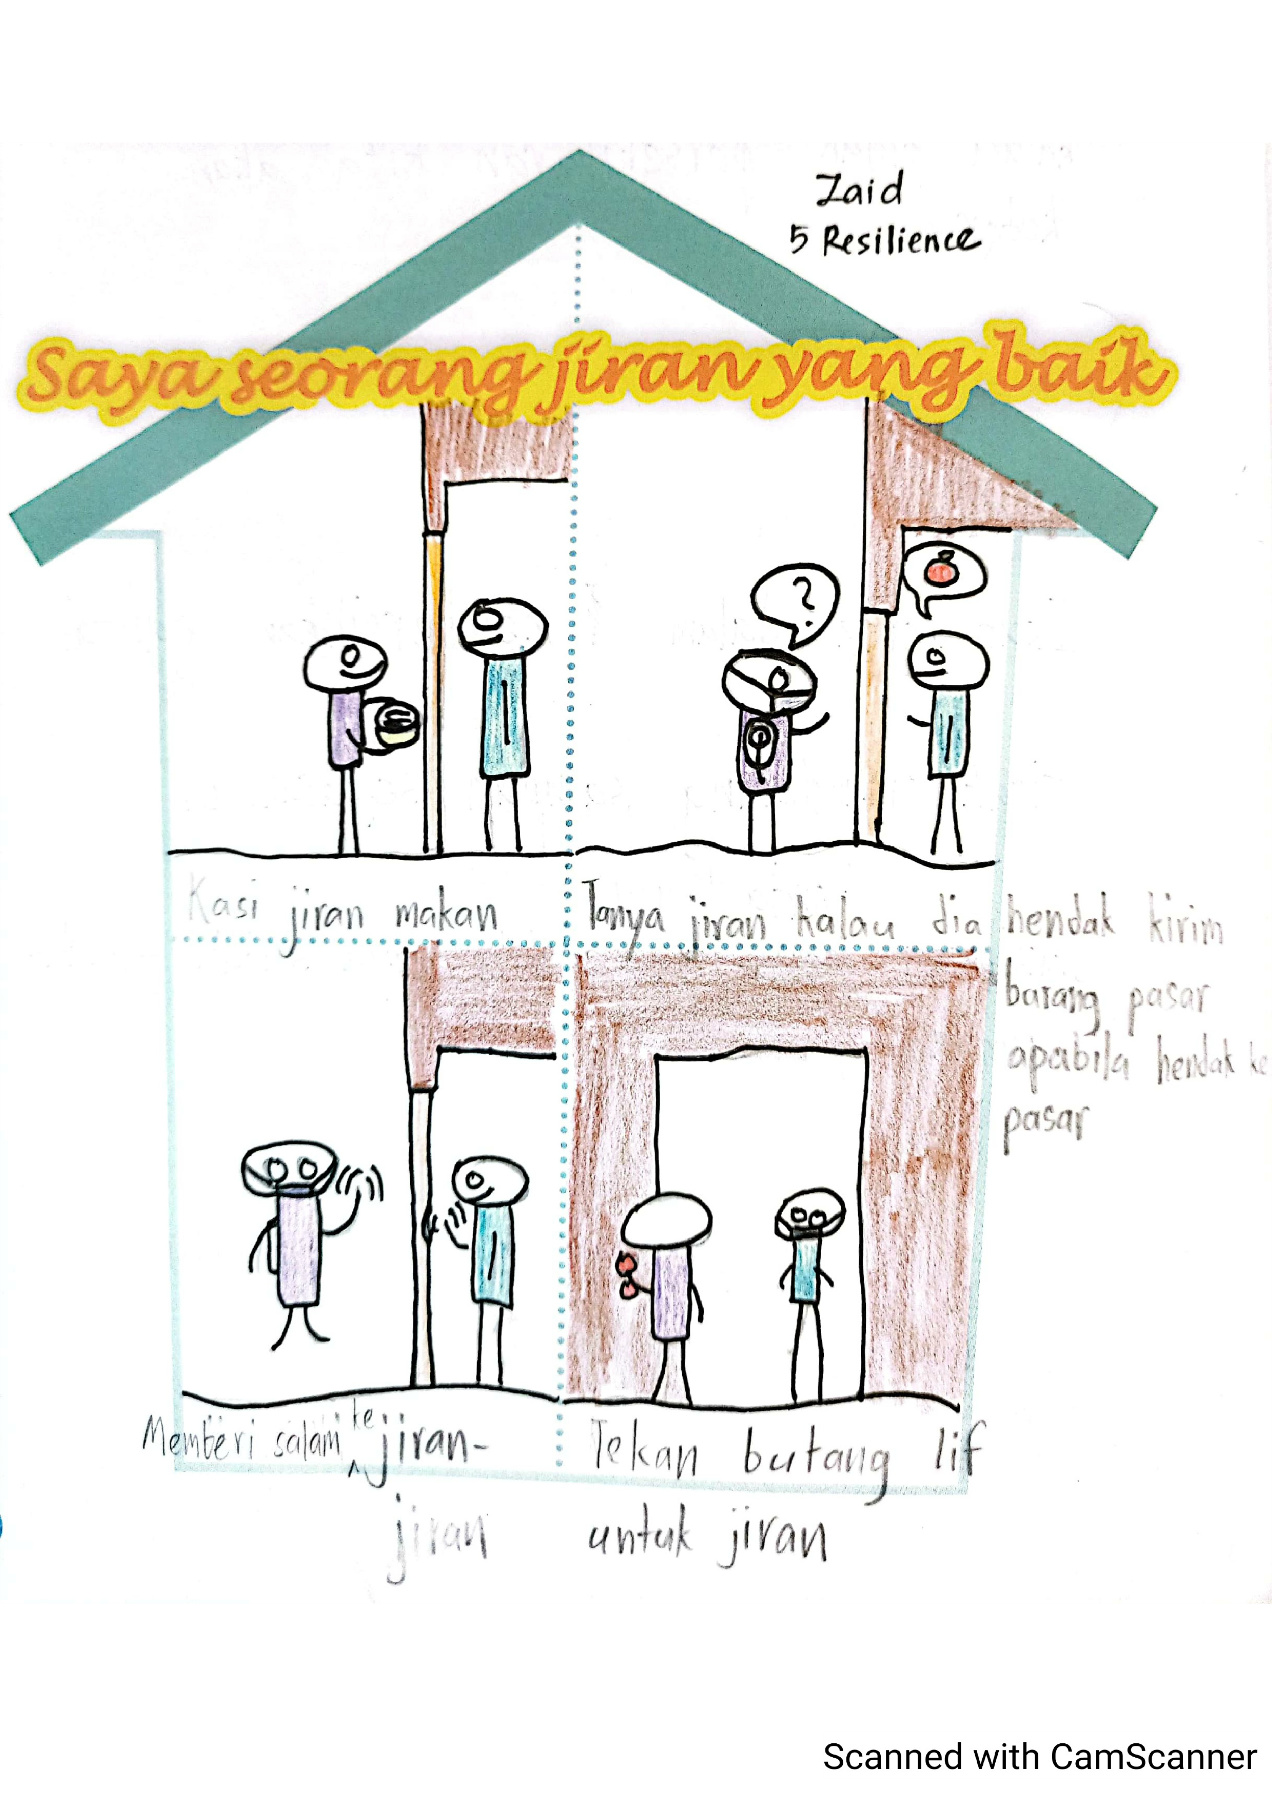 Zaid
5 Resilience
Saya seorang jiran yang baik
?
Kasi jiran makan
Tanya jiran kalau dia hendak kirim
barang pasar
apabila hendak ke
pasar
Memberi salam ke jiran-
jiran
Tekan butang lif
untuk jiran
Scanned with CamScanner